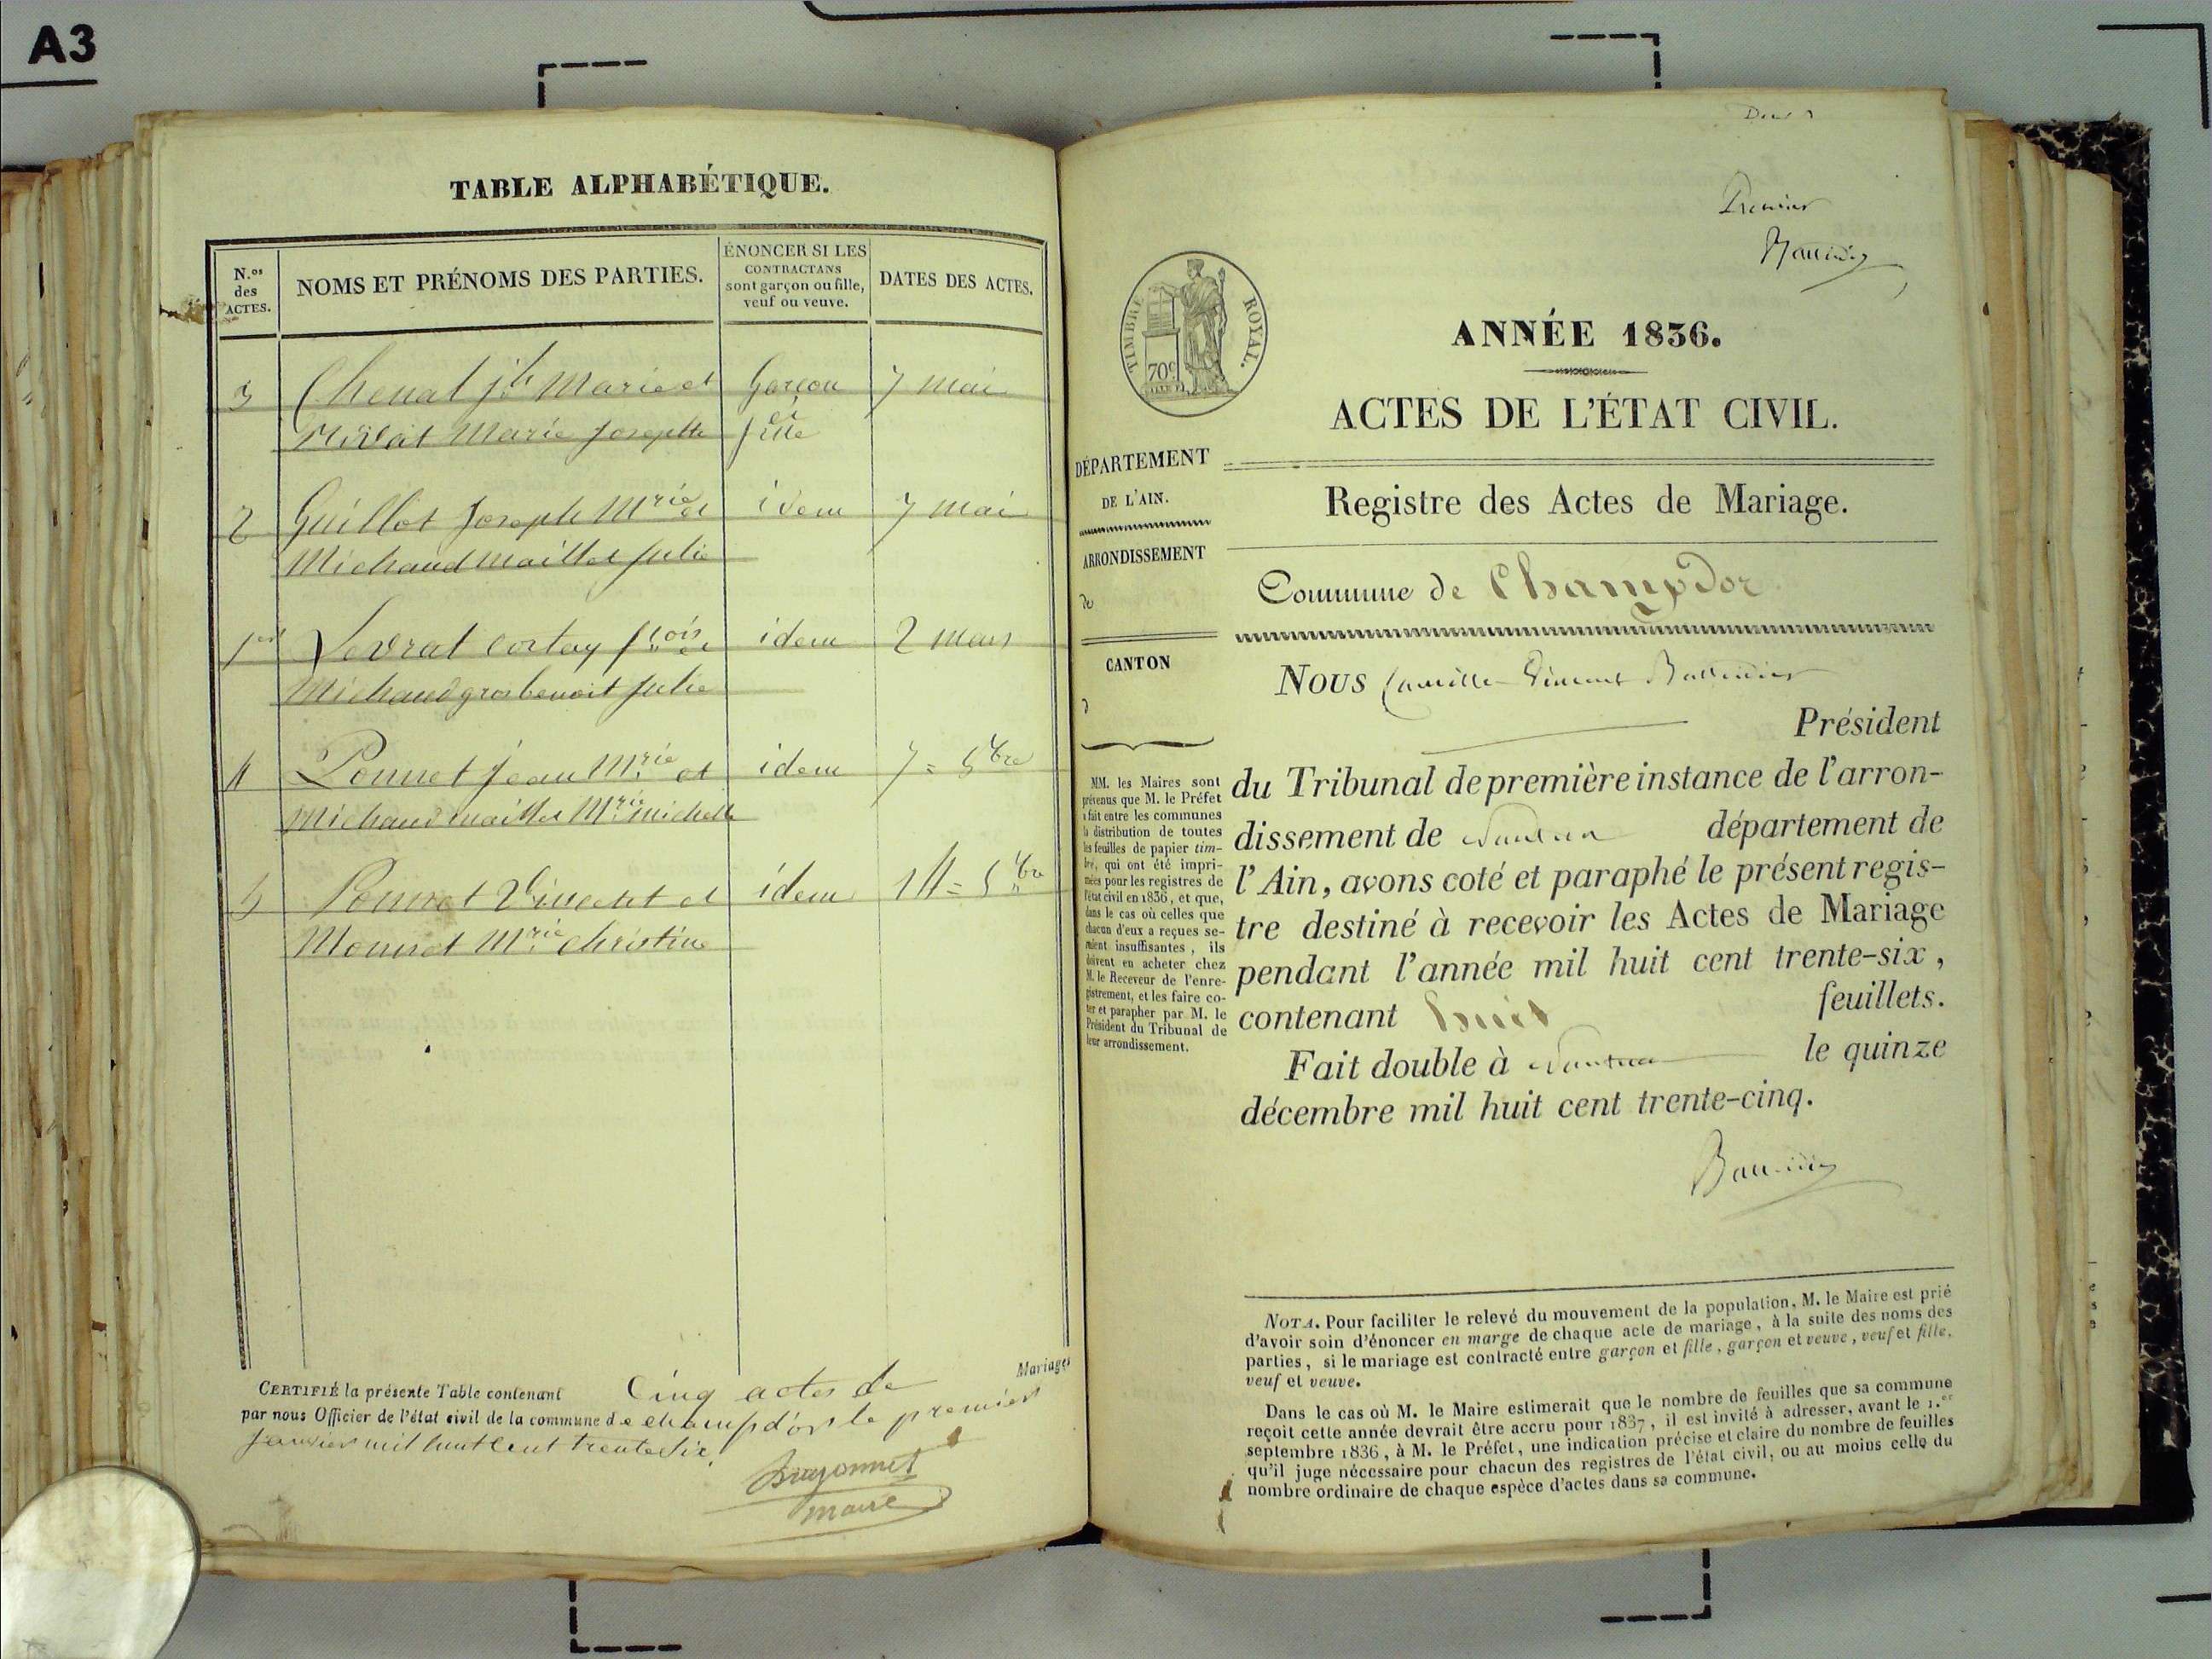 A3
TABLE ALPHABÉTIQUE.
N.os des ACTES.
NOMS ET PRÉNOMS DES PARTIES.
ÉNONCER SI LES
CONTRACTANS
sont garçon ou fille,
veuf ou veuve.
DATES DES ACTES.
3 Chenat jh Marie et Garçon 7 mai
Marie Josephte fille
2 Guillot Joseph Mrie et idem 7 mai
Michaud maillet Julie
1er Levrat costaz fçois et idem 2 mars
Michaud gros benoit Julie
4 Ponnet Jean Mrie et idem 7 = 8bre
Michaud maillet Mrie michelle
5 Ponnet Vincent et idem 14 =
Monnet Mrie christine
Mariages
CERTIFIÉ la présente Table contenant Cinq actes de
par nous Officier de l'état civil de la commune de champdor le premier
janvier mil huit cent trente six.
maire
Premier
TIMBRE ROYAL.
70c
ANNÉE 1836.
ACTES DE L'ÉTAT CIVIL.
DÉPARTEMENT
DE L'AIN.
Registre des Actes de Mariage.
ARRONDISSEMENT
de
Commune de Champdor
CANTON
d
NOUS Camille Vincent
Président
du Tribunal de première instance de l'arron-
dissement de Nantua département de
l'Ain, avons coté et paraphé le présent regis-
tre destiné à recevoir les Actes de Mariage
pendant l'année mil huit cent trente-six,
contenant huit feuillets.
Fait double à Nantua le quinze
décembre mil huit cent trente-cinq.
MM. les Maires sont
prévenus que M. le Préfet
a fait entre les communes
la distribution de toutes
les feuilles de papier tim-
bré, qui ont été impri-
mées pour les registres de
l'état civil en 1836, et que,
dans le cas où celles que
chacun d'eux a reçues se-
raient insuffisantes, ils
doivent en acheter chez
M. le Receveur de l'enre-
gistrement, et les faire co-
ter et parapher par M. le
Président du Tribunal de
leur arrondissement.
NOTA. Pour faciliter le relevé du mouvement de la population, M. le Maire est prié
d'avoir soin d'énoncer en marge de chaque acte de mariage, à la suite des noms des
parties, si le mariage est contracté entre garçon et fille, garçon et veuve, veuf et fille,
veuf et veuve.
Dans le cas où M. le Maire estimerait que le nombre de feuilles que sa commune
reçoit cette année devrait être accru pour 1837, il est invité à adresser, avant le 1.er
septembre 1836, à M. le Préfet, une indication précise et claire du nombre de feuilles
qu'il juge nécessaire pour chacun des registres de l'état civil, ou au moins celle du
nombre ordinaire de chaque espèce d'actes dans sa commune.